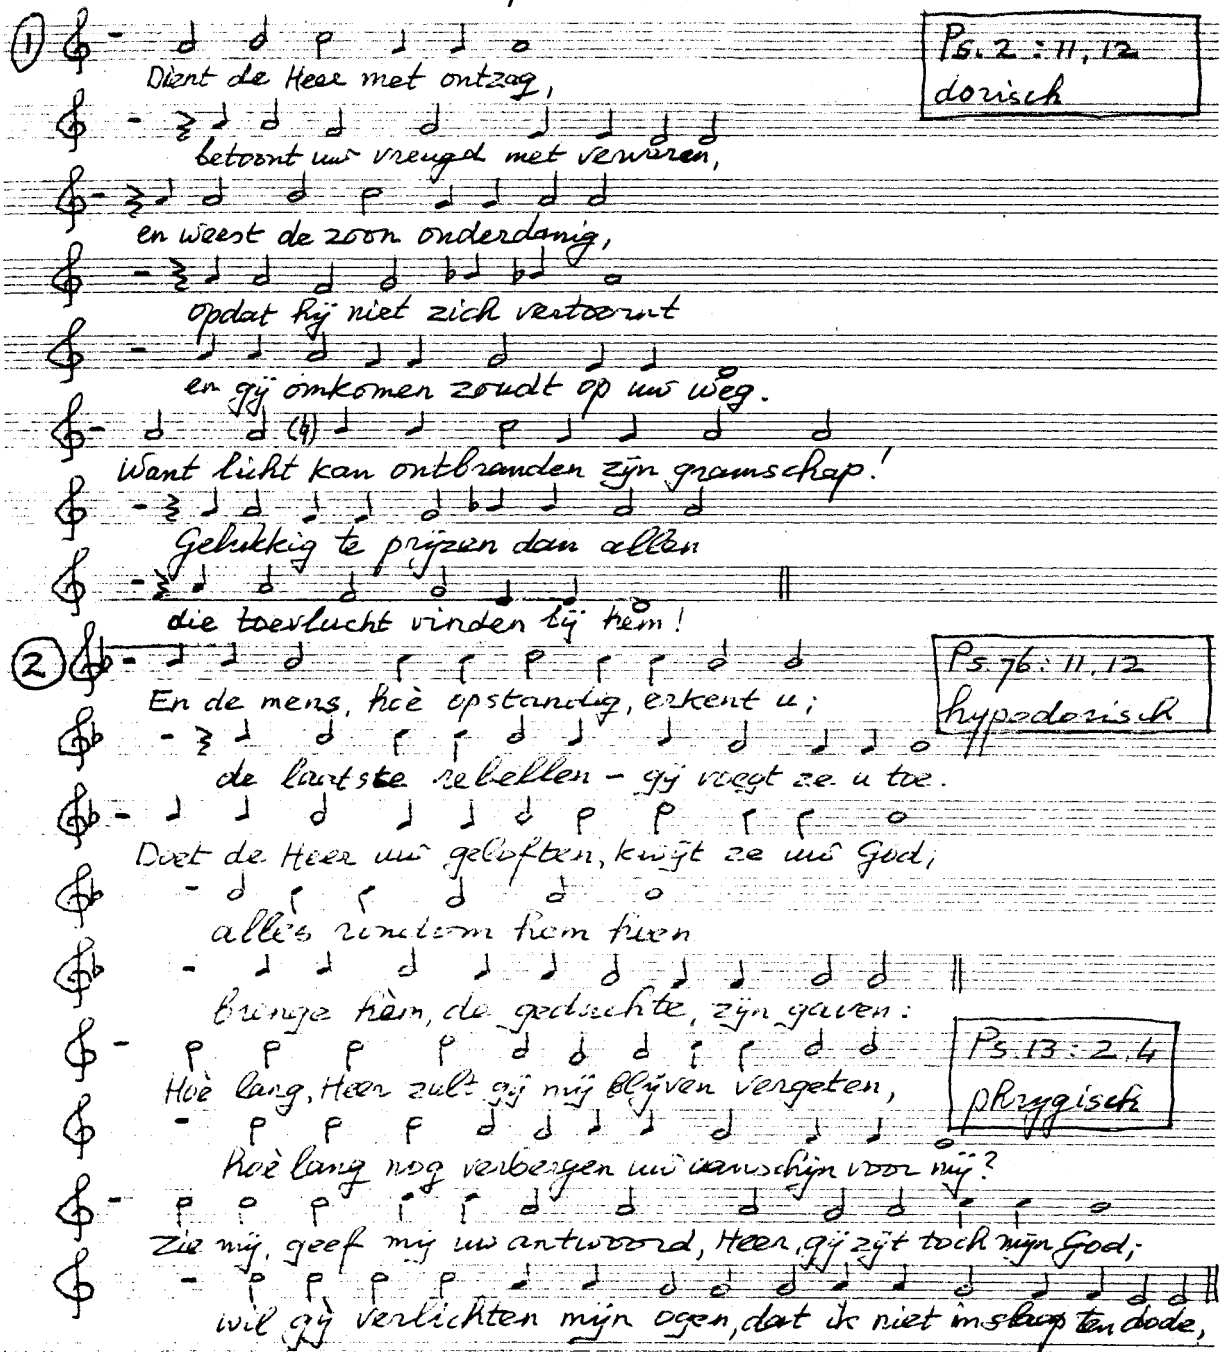 1
Ps. 2 : 11, 12
dorisch
Dient de Heer met ontzag,
betoont uw vreugd met vervaren,
en weest de zoon onderdanig,
opdat hij niet zich vertoornt
en gij omkomen zoudt op uw weg.
Want licht kan ontbranden zijn gramschap!
Gelukkig te prijzen dan allen
die toevlucht vinden bij hem!
2
Ps. 76 : 11, 12
hypodorisch
En de mens, hoè opstandig, erkent u;
de laatste rebellen – gij voegt ze u toe.
Doet de Heer uw geloften, kwijt ze uw God;
alles rondom hem heen
brenge hèm, de geduchte, zijn gaven:
Ps. 13 : 2, 4
phrygisch
Hoè lang, Heer zult gij mij blijven vergeten,
hoè lang nog verbergen uw aanschijn voor mij?
Zie mij, geef mij uw antwoord, Heer, gij zijt toch mijn God;
wil gij verlichten mijn ogen, dat ik niet inslaap ten dode,